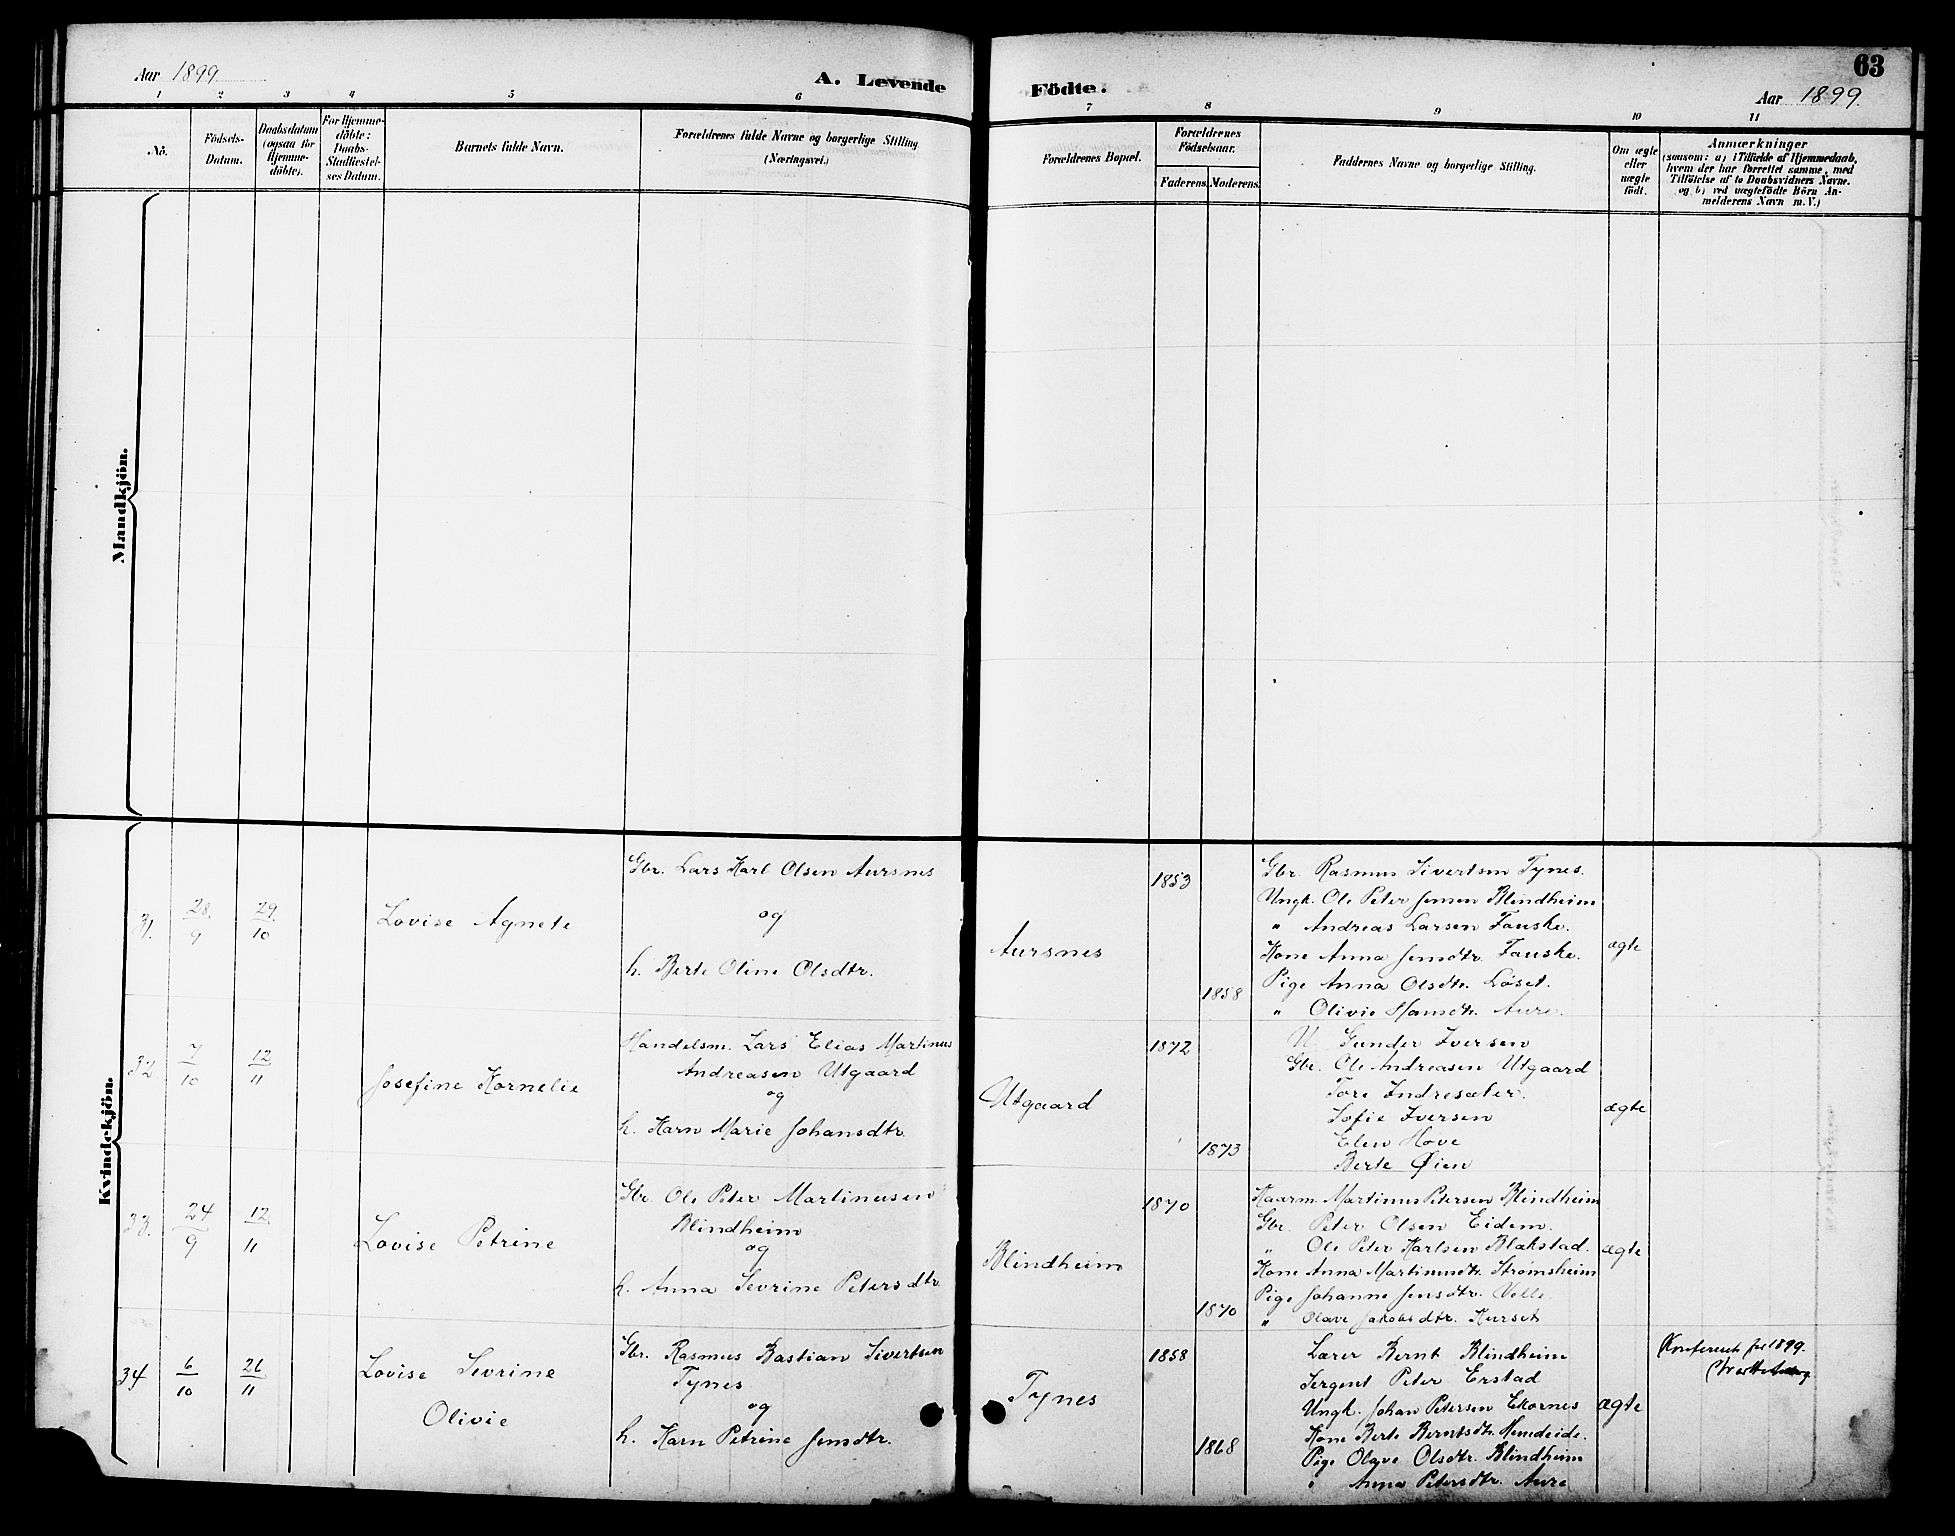 Aar 1899
A. Levende Födte.
63
Aar 1899.
1 2 3 4 5 6 7 8 9 10 11
No.
Födsels-Datum.
Daabsdatum (ogsaa for Hjemme-döbte).
For Hjemme-döbte: Daabs-Stadfæstel-ses Datum.
Barnets fulde Navn.
Forældrenes fulde Navne og borgerlige Stilling (Næringsvei.)
Forældrenes Bopæl.
Forældrenes Födselsaar.
Faderens. Moderens.
Faddernes Navne og borgerlige Stilling.
Om ægte eller uægte födt.
Anmærkninger
(saasom: a) i Tilfælde af Hjemmedaab,
hvem der har forrettet samme, med
Tilföielse af to Daabsvidners Navne.
og b) ved uægtefödte Börn An-
melderens Navn m. V.)
Mandkjön.
Kvindekjön.
31. 28/9 29/10 Lovise Agnete
Gbr. Lars Karl Olsen Aursnes
og
h. Berte Oline Olsdtr.
Aursnes
1853
1858
Gbr. Rasmus Sivertsen Tynes.
Ungk. Ole Peter Jensen Blindheim
" Andreas Larsen Fauske.
Kone Anna Jensdtr. Fauske.
Pige Anna Olsdtr. Løset.
" Olivie Hansdtr. Aure.
ægte
32 7/10 12/11 Josefine Kornelie
Handelsm. Lars Elias Martinus
Andreasen Utgaard
og
h. Karn Marie Johansdtr.
Utgaard
1872
1873
U. Gunder Iversen
Gbr. Ole Andreasen Utgaard
Tore Indresæter.
Sofie Iversen
Elen Hove
Berte Øien
ægte
33. 24/9 12/11 Lovise Petrine
Gbr. Ole Peter Martinusen
Blindheim
og
h. Anna Sevrine Petersdtr.
Blindheim
1870
1870
Kaarm. Martinus Petersen Blindheim
Gbr. Peter Olsen Eidem.
" Ole Peter Karlsen Blakstad.
Kone Anna Martinusdtr. Strømsheim
Pige Johanne Jensdtr. Velle.
" Olave Jakobsdtr. Kurset
ægte
34 6/10 26/11 Lovise Sevrine
Olivie
Gbr. Rasmus Bastian Sivertsen
Tynes
og
h. Karn Petrine Jensdtr.
Tynes
1858
1868
Lærer Bernt Blindheim
Sergent Peter Erstad
Ungk. Johan Petersen Ekornes
Kone Berte Berntsdtr. Hundeide.
Pige Olave Olsdtr. Blindheim
" Anna Petersdtr. Aure
ægte
Konfereret for 1899.